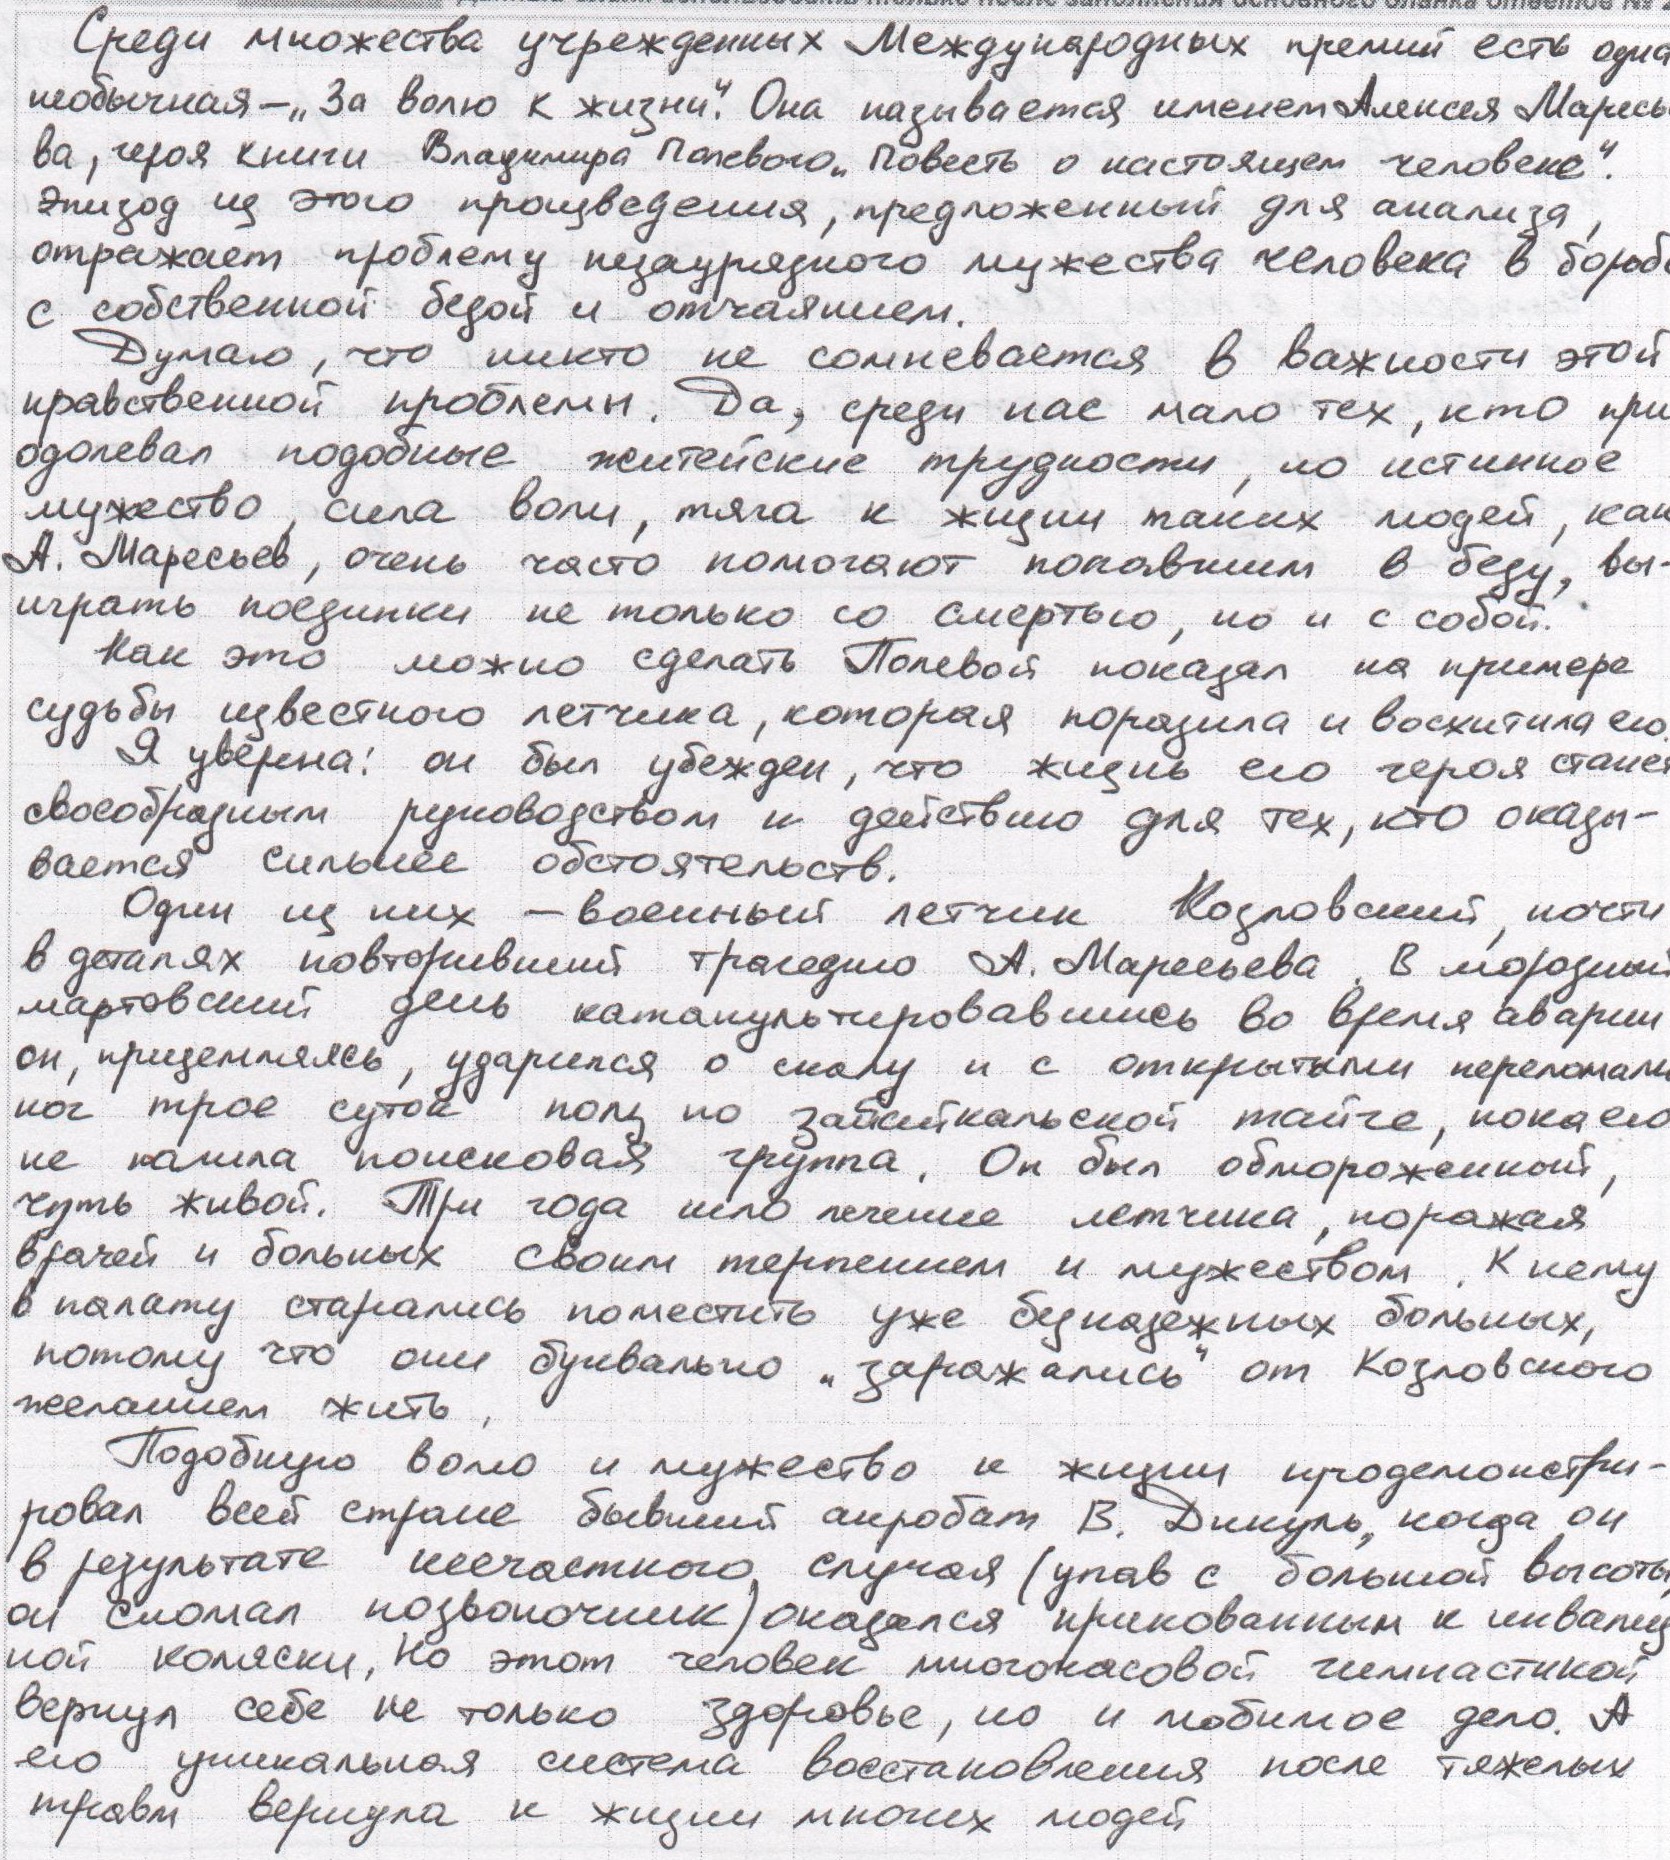 Данный бланк использовать только после заполнения основного бланка ответов № 2
Среди множества учрежденных Международных премий есть одна
необычная – „За волю к жизни". Она называется именем Алексея Маресь
ва, героя книги Владимира Полевого „Повесть о настоящем человеке".
Эпизод из этого произведения, предложенный для анализа,
отражает проблему незаурядного мужества человека в борьбе
с собственной бедой и отчаянием.
Думаю, что никто не сомневается в важности этой
нравственной проблемы. Да, среди нас мало тех, кто при
одолевал подобные житейские трудности, но истинное
мужество, сила воли, тяга к жизни таких людей, как
А. Маресьев, очень часто помогают попавшим в беду, вы-
играть поединки не только со смертью, но и с собой.
Как это можно сделать Полевой показал на примере
судьбы известного летчика, которая поразила и восхитила его.
Я уверна: он был убежден, что жизнь его героя станет
своеобразным руководством к действию для тех, кто оказы-
вается сильнее обстоятельств.
Один из них – военный летчик Козловский, почти
в деталях повторивший трагедию А. Маресьева. В морозный
мартовский день катапультировавшись во время аварии
он, приземляясь, ударился о скалу и с открытыми переломами
ног трое суток полз по забайкальской тайге, пока его
не нашла поисковая группа. Он был обмороженный,
чуть живой. Три года шло лечение летчика, поражая
врачей и больных своим терпением и мужеством. К нему
в палату старались поместить уже безнадежных больных,
потому что они буквально „заражались" от Козловского
желанием жить.
Подобную волю и мужество к жизни продемонстри-
ровал всей стране бывший акробат В. Дикуль, когда он
в результате несчастного случая (упав с большой высоты,
он сломал позвоночник) оказался прикованным к инвалид
ной коляски, Но этот человек многочасовой гимнастикой
вернул себе не только здоровье, но и любимое дело. А
его уникальная система восстановления после тяжелых
травм вернула к жизни многих людей